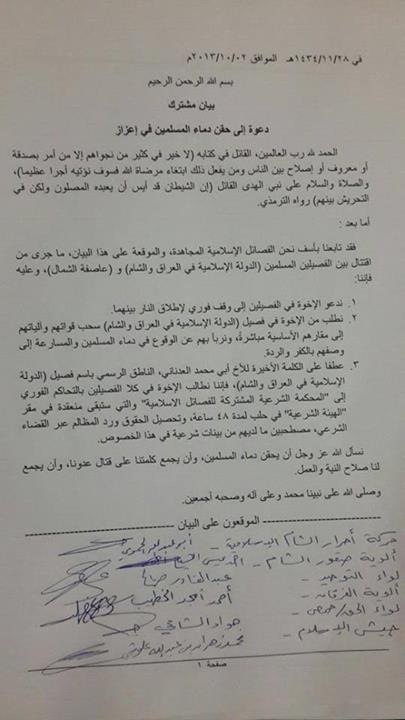 في ١٤٣٤/١١/٢٨هـ الموافق ٢٠١٣/١٠/٠٢م
بسم الله الرحمن الرحيم
بيان مشترك
دعوة إلى حقن دماء المسلمين في إعزاز
الحمد لله رب العالمين، القائل في كتابه (لا خير في كثير من نجواهم إلا من أمر بصدقة
أو معروف أو إصلاح بين الناس ومن يفعل ذلك ابتغاء مرضاة الله فسوف نؤتيه أجرا عظيما)،
والصلاة والسلام على نبي الهدى القائل (إن الشيطان قد أيس أن يعبده المصلون ولكن في
التحريش بينهم) رواه الترمذي.
أما بعد :
فقد تابعنا بأسف نحن الفصائل الإسلامية المجاهدة، والموقعة على هذا البيان، ما جرى من
اقتتال بين الفصيلين المسلمين (الدولة الإسلامية في العراق والشام) و (عاصفة الشمال)، وعليه
فإننا:
١. ندعو الإخوة في الفصيلين إلى وقف فوري لإطلاق النار بينهما.
٢. نطلب من الإخوة في فصيل (الدولة الإسلامية في العراق والشام) سحب قواتهم وآلياتهم
إلى مقارهم الأساسية مباشرةً، ونربأ بهم عن الوقوع في دماء المسلمين والمسارعة إلى
وصفهم بالكفر والردة.
٣. عطفا على الكلمة الأخيرة للأخ أبي محمد العدناني، الناطق الرسمي باسم فصيل (الدولة
الإسلامية في العراق والشام)، فإننا نطالب الإخوة في كلا الفصيلين بالتحاكم الفوري
إلى "المحكمة الشرعية المشتركة للفصائل الاسلامية" والتي ستبقى منعقدة في مقر
"الهيئة الشرعية" في حلب لمدة ٤٨ ساعة، وتحصيل الحقوق ورد المظالم عبر القضاء
الشرعي، مصطحبين ما لديهم من بينات شرعية في هذا الخصوص.
نسأل الله عز وجل أن يحقن دماء المسلمين، وأن يجمع كلمتنا على قتال عدونا، وأن يجمع
لنا صلاح النية والعمل.
وصلى الله على نبينا محمد وعلى آله وصحبه أجمعين.
الموقعون على البيان
حركة أحرار الشام الإسلامية - أبو عبد الله الحموي
ألوية صقور الشام - أحمد عيسى الشيخ
لواء التوحيد - عبد القادر صالح
ألوية الفرقان - أحمد أمجد الخطيب
لواء الحق / حمص -
جيش الإسلام - محمد زهران بن عبد الله علوش
صفحة ١